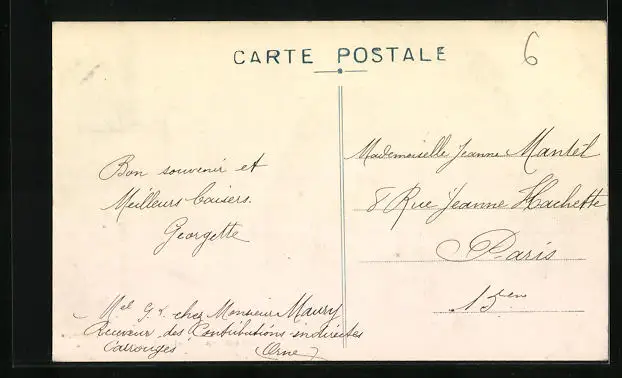 CARTE POSTALE
6
Bon souvenir et
Meilleurs baisers.
Georgette
Mel G. chez Monsieur Maury
Receveur des Contributions indirectes
Carrouges (Orne)
Mademoiselle Jeanne Mantel
8 Rue Jeanne Hachette
Paris
15em